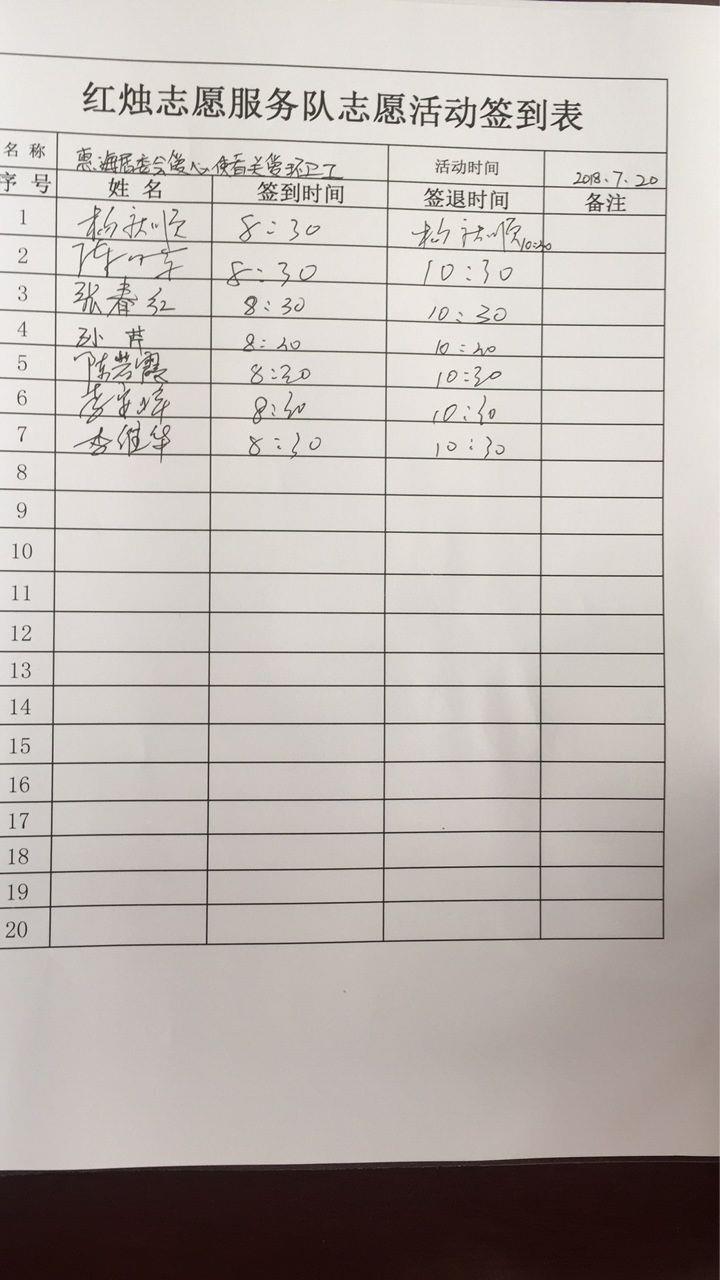 红烛志愿服务队志愿活动签到表
名 称 惠海居委会爱心使者关爱环卫工 活动时间 2018.7.20
序 号 姓 名 签到时间 签退时间 备注
1 杨 顺 8:30 杨 顺 10:30
2 陈 8:30 10:30
3 张春红 8:30 10:30
4 孙芹 8:30 10:30
5 陈芳霞 8:30 10:30
6 李 8:30 10:30
7 李继华 8:30 10:30
8
9
10
11
12
13
14
15
16
17
18
19
20